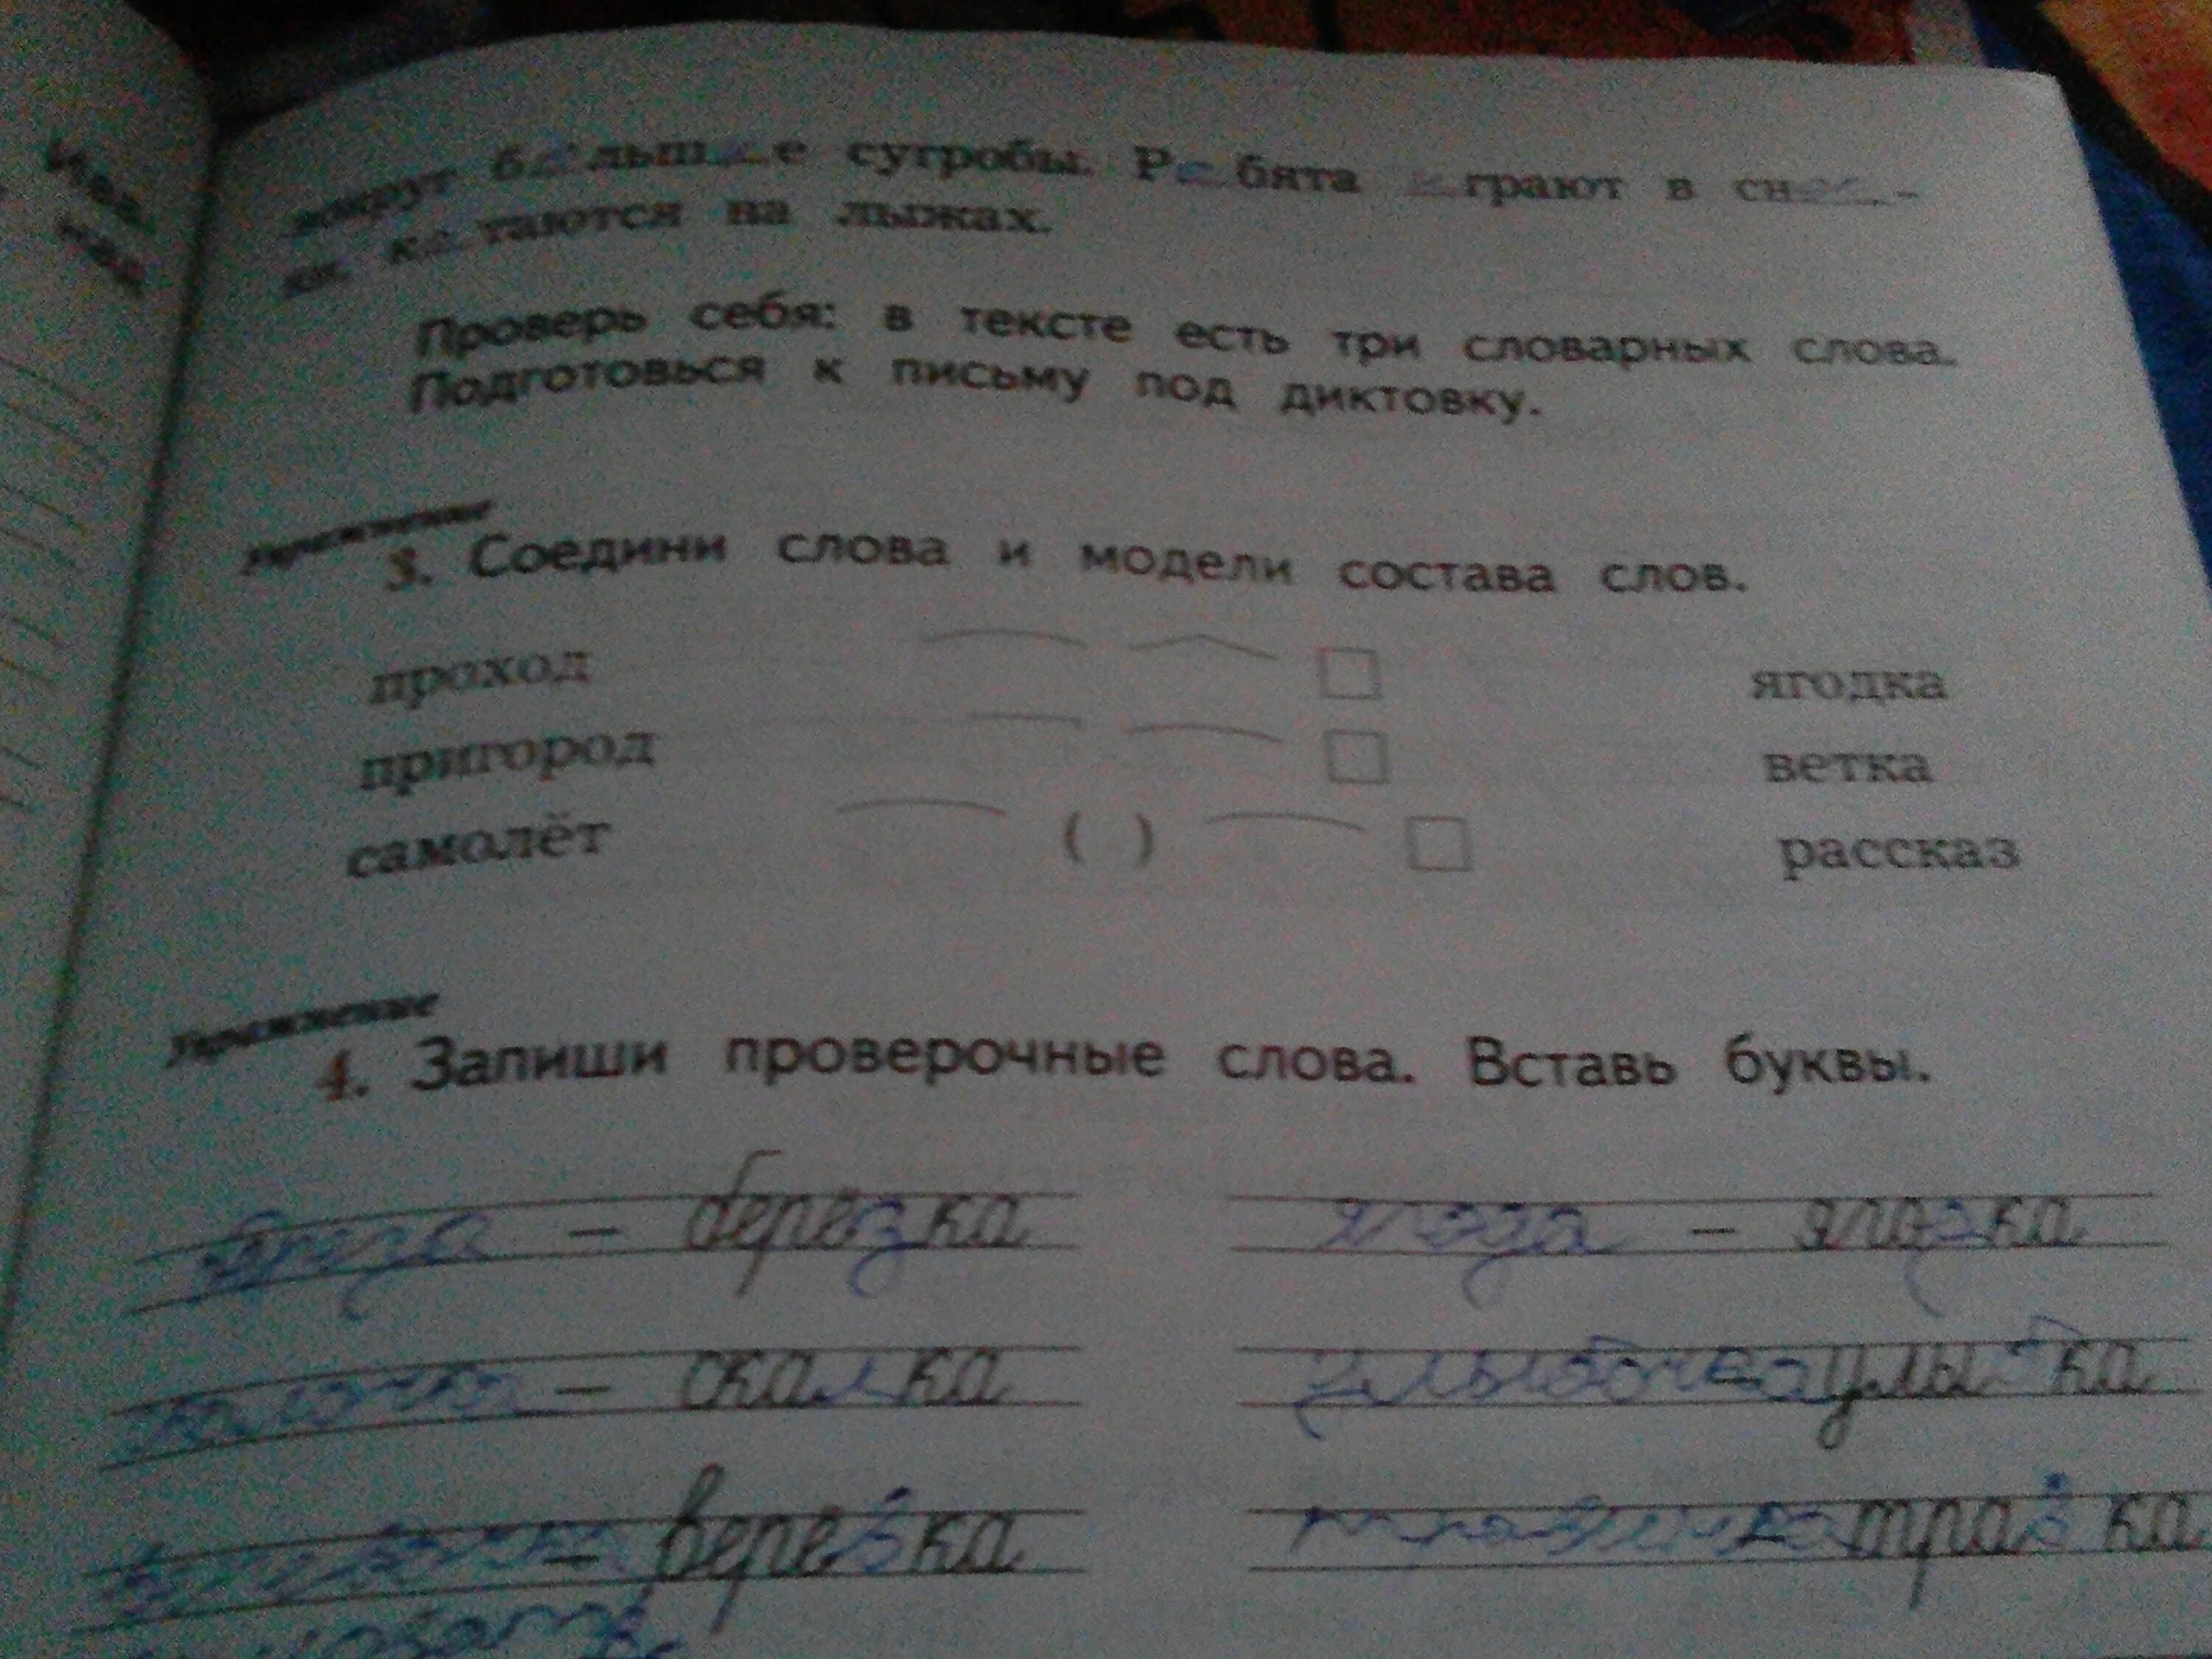 вокруг больш е сугробы. Ребята играют в сне -
ки, катаются на лыжах.
Проверь себя: в тексте есть три словарных слова.
Подготовься к письму под диктовку.
Упражнение
3. Соедини слова и модели состава слов.
проход ягодка
пригород ветка
самолёт ( ) рассказ
Упражнение
4. Запиши проверочные слова. Вставь буквы.
береза – березка ягода – ягодка
– скалка улыбочка улыбка
– веревка травинка травка